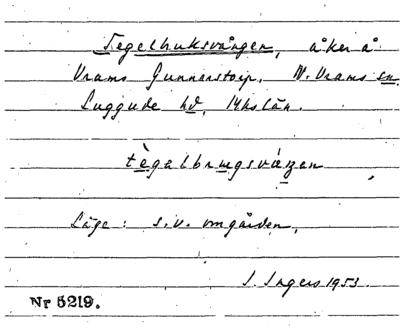 Tegelbruksvången, åker å
Vrams Gunnarstorp, N. Vrams sn.
Luggude hd, Mhs län.
tègalbrugsváŋen
Läge: s.v. om gården.
I. Ingers 1953.
Nr 5219.